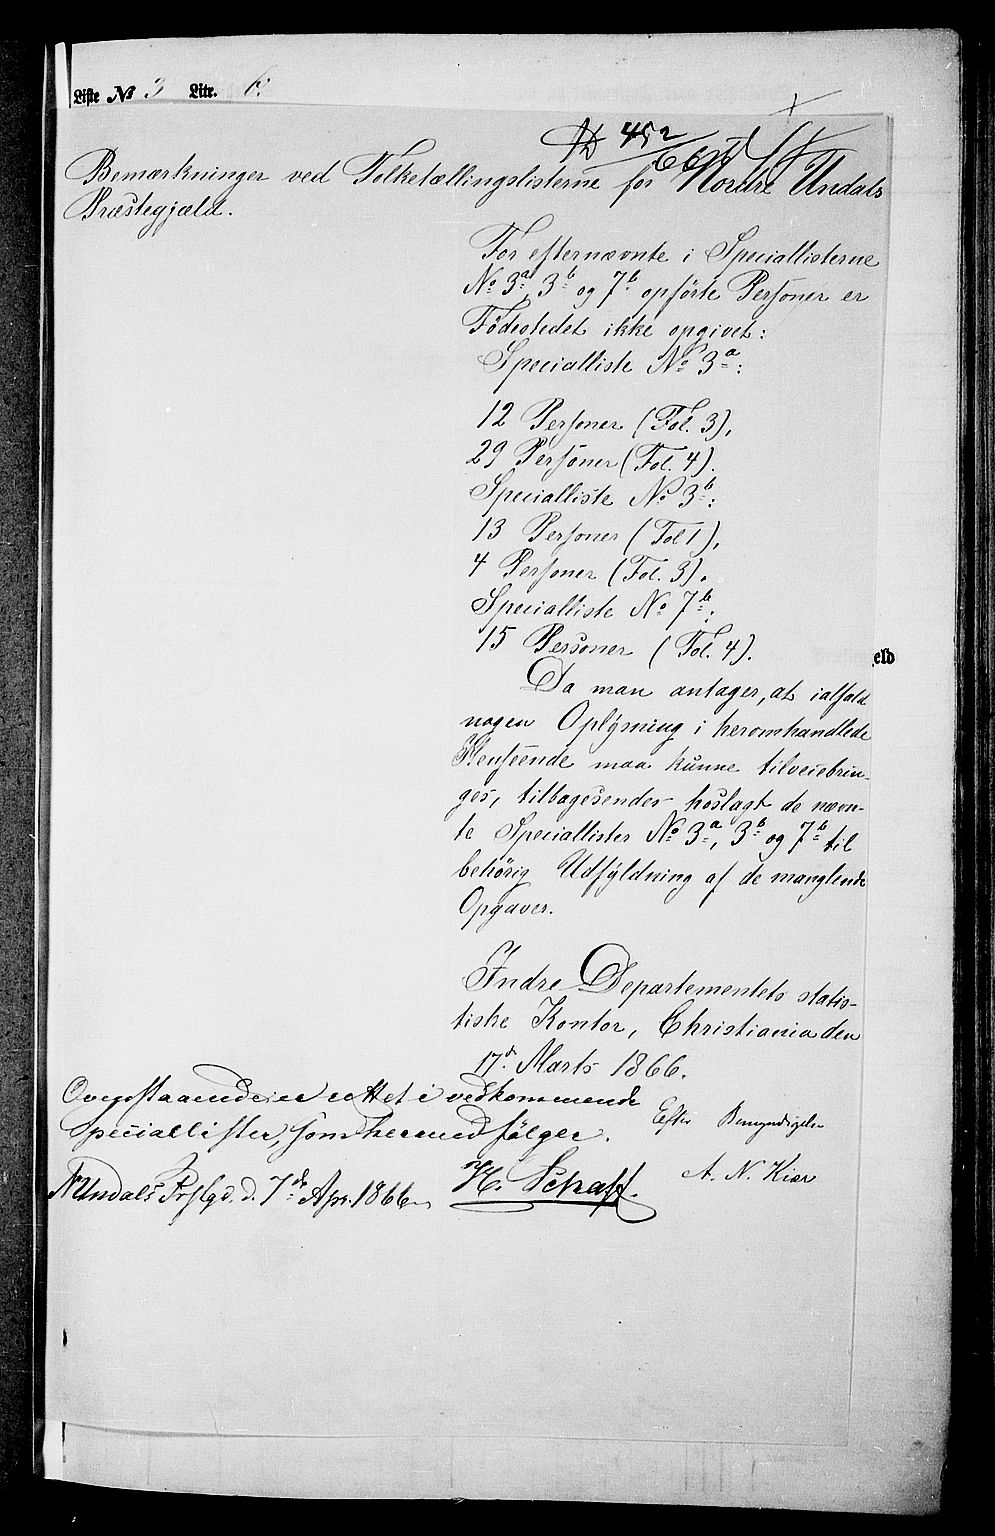 Liste № 3 Litr. b.
452
Bemærkninger ved Folketællingslisterne for Nordre Undals
Præstegjæld.
For efternævnte i Speciallisterne
No 3a, 3b og 7b opförte Personer er
Födestedet ikke opgivet:
Specialliste No 3a:
12 Personer (Fol. 3),
29 Personer (Fol. 4).
Specialliste No 3b:
13 Personer (Fol 1),
4 Personer (Fol. 3).
Specialliste No 7b:
15 Personer (Fol. 4).
eld
Da man antager, at ialfald
nogen Oplysning i heromhandlede
Henseende maa kunne tilveiebrin-
ges, tilbagesendes hoslagt de nævn-
te Speciallister No 3a, 3b og 7b til
behörig Udfyldning af de manglende
Opgaver.
Indre Departementets statis-
tiske Kontor, Christiania den
17d Marts 1866.
Efter Bemyndigelse
A. N. Kiær
Ovenstaaende er rettet i vedkommende
Speciallister, som hermed fölger.
N Undals Prstgd. d. 7de Apr. 1866
H. Schaff.